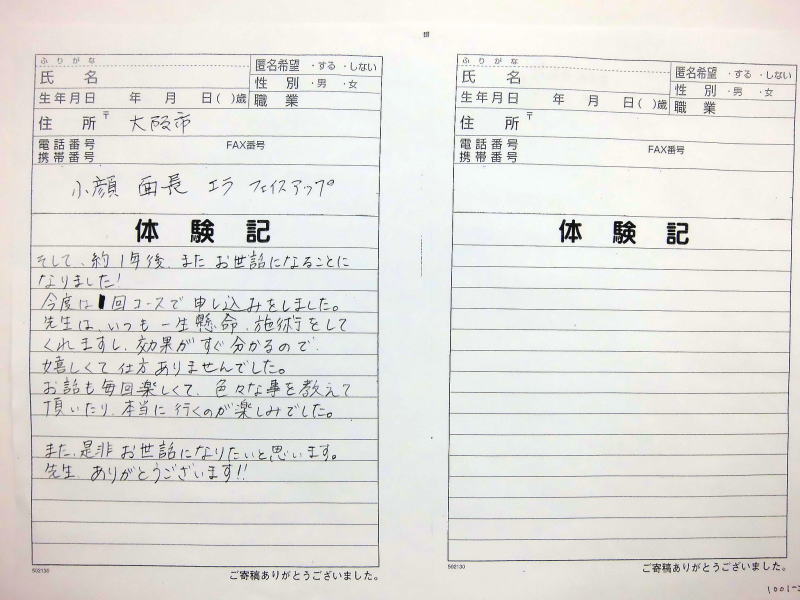 ふりがな
氏 名
匿名希望 ・する ・しない
性 別 ・男 ・女
生年月日 年 月 日( )歳
職 業
住 所 〒 大阪市
電話番号 FAX番号
携帯番号
小顔 面長 エラ フェイスアップ
体 験 記
そして、約1年後、またお世話になることに
なりました!
今度は1回コースで申し込みをしました。
先生は、いつも一生懸命、施術をして
くれますし、効果がすぐ分かるので、
嬉しくて仕方ありませんでした。
お話も毎回楽しくて、色々な事を教えて
頂いたり、本当に行くのが楽しみでした。
また、是非お世話になりたいと思います。
先生、ありがとうございます!!
502130
ご寄稿ありがとうございました。
ふりがな
氏 名
匿名希望 ・する ・しない
性 別 ・男 ・女
生年月日 年 月 日( )歳
職 業
住 所 〒
電話番号 FAX番号
携帯番号
体 験 記
502130
ご寄稿ありがとうございました。